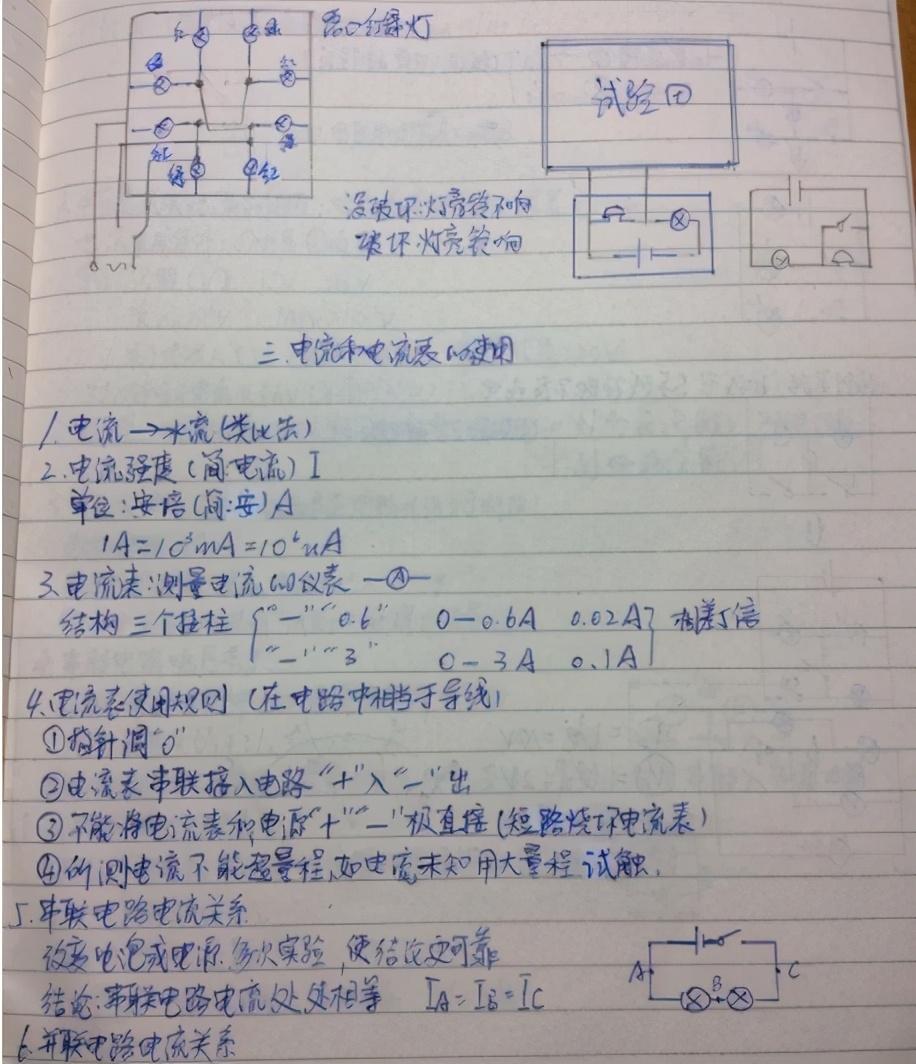 路口红绿灯
红 绿
绿 红
红 绿
绿 红
试验田
没破坏:灯亮铃不响
破坏:灯亮铃响
三.电流和电流表的使用
1.电流→水流(类比法)
2.电流强度(简:电流)I
单位:安培(简:安)A
1A=10³mA=10⁶uA
3.电流表:测量电流的仪表 A
结构 三个接柱 "—" "0.6" 0—0.6A 0.02A 相差5倍
"—" "3" 0-3A 0.1A
4.电流表使用规则(在电路中相当于导线)
①指针调"0"
②电流表串联接入电路"+"入"—"出
③不能将电流表和电源"+""—"极直接(短路烧坏电流表)
④所测电流不能超量程,如电流未知用大量程试触.
5.串联电路电流关系
改变电泡或电源.多次实验,使结论更可靠
A B C
结论:串联电路电流处处相等 IA=IB=IC
6.并联电路电流关系